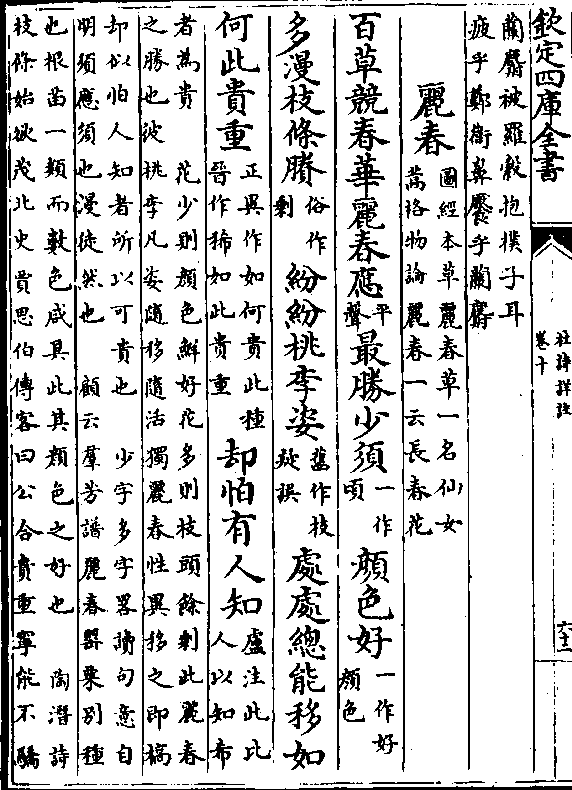 欽定四庫全書
杜詩詳註
卷十
六十三
蘭麝被羅縠抱樸子耳
疲乎鄭衛鼻饜乎蘭麝
麗春
圖經本草麗春草一名仙女
蒿格物論麗春一云長春花
百草競春華麗春應平聲最勝少須一作頃顏色好一作好顏色
多漫枝條賸俗作剩紛紛桃李姿舊作枝疑誤處處總能移如
何此貴重正異作如何貴此種晉作稀如此貴重却怕有人知盧注此比人以如布
者為貴 花少則顏色鮮好花多則枝頭餘剩此麗春
之勝也彼桃李凡姿隨移隨活獨麗春性異移之即槁
却似怕人知者所以可貴也 少字多字畧讀句意自
明須應須也漫徒然也 顧云羣芳譜麗春罌粟別種
也根苗一類而數色咸具此其顏色之好也 陶潛詩
枝條始欲茂北史賈思伯傳客曰公合貴重寧能不驕